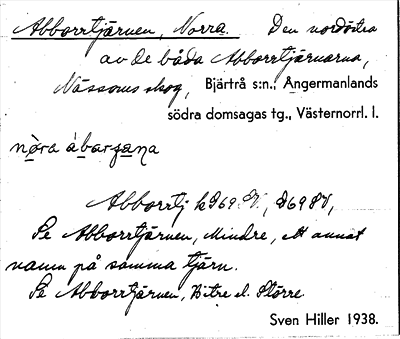 Abborrtjärnen, Norra. Den nordöstra
av de båda Abborrtjärnarna,
Nässoms skog, Bjärtrå s:n., Ångermanlands
södra domsagas tg., Västernorrl. l.
Abborrtj
Se Abborrtjärnen, Mindre, ett annat
namn på samma tjärn.
Se Abborrtjärnen, Bitre el. Större.
Sven Hiller 1938.